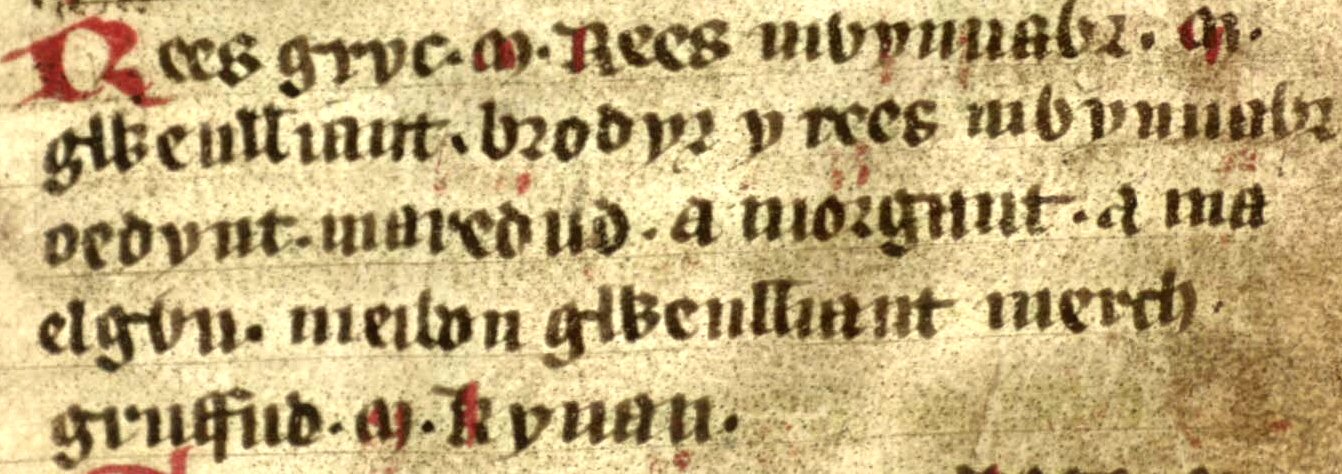 Rees gryc. m. Rees mwynuawr. m.
gwenlliant. brodyr y rees mwynuawr
oedynt. maredud. a morgant. a ma
elgwn. meibon gwenlliant merch
gruffud. m. kynan.